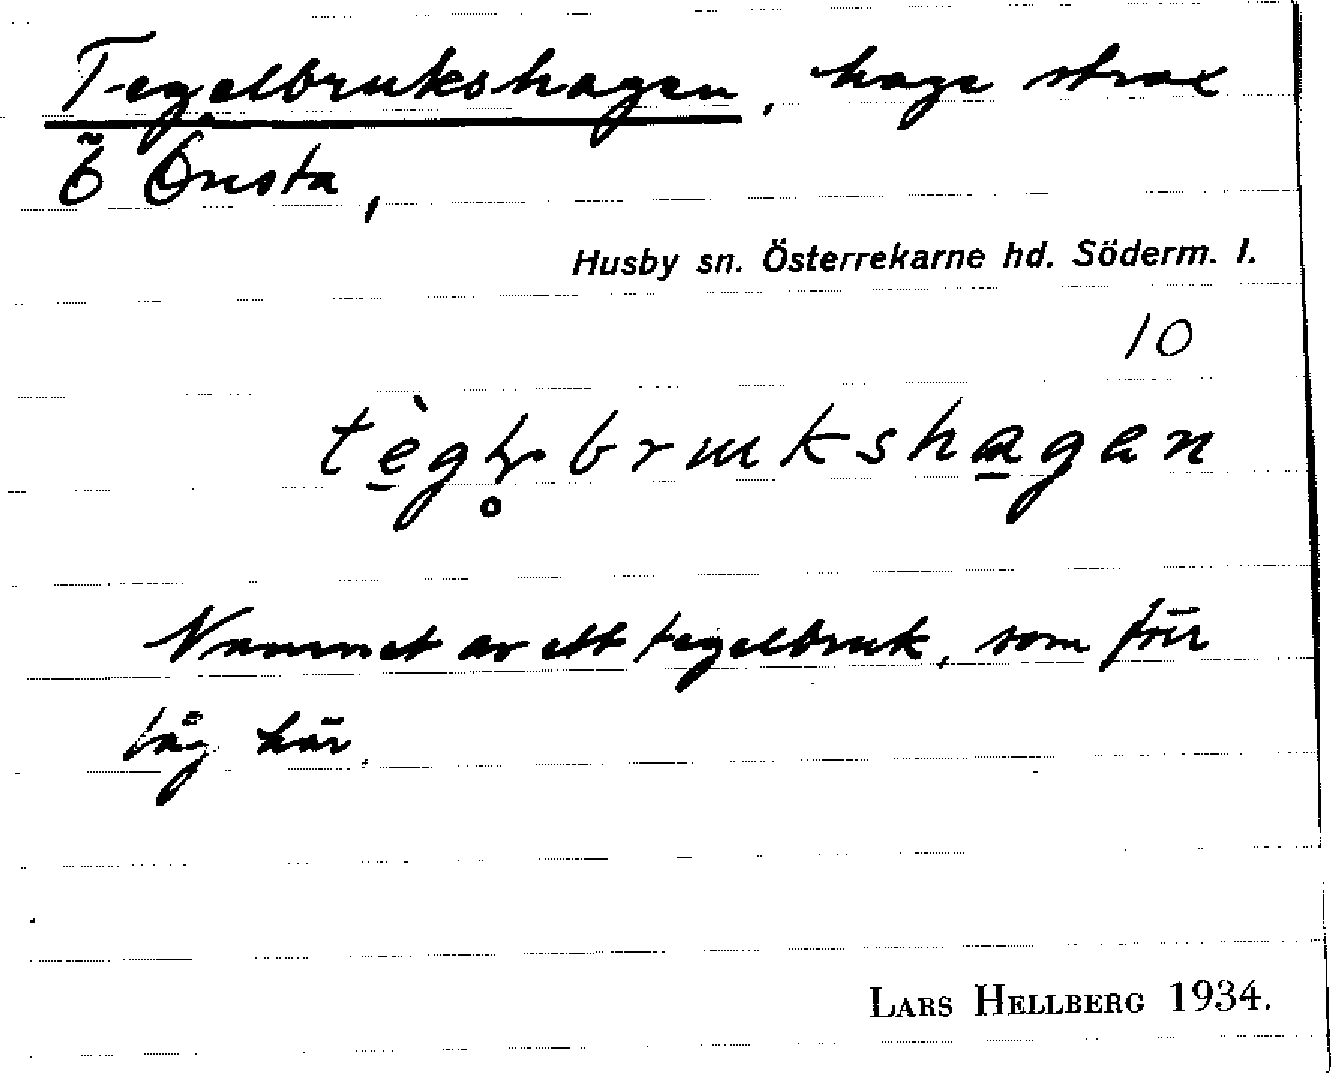 Tegelbrukshagen, hage strax
Ö Önsta,
Husby sn. Österrekarne hd. Söderm. l.
10
Namnet av ett tegelbruk, som förr
låg här.
LARS HELLBERG 1934.